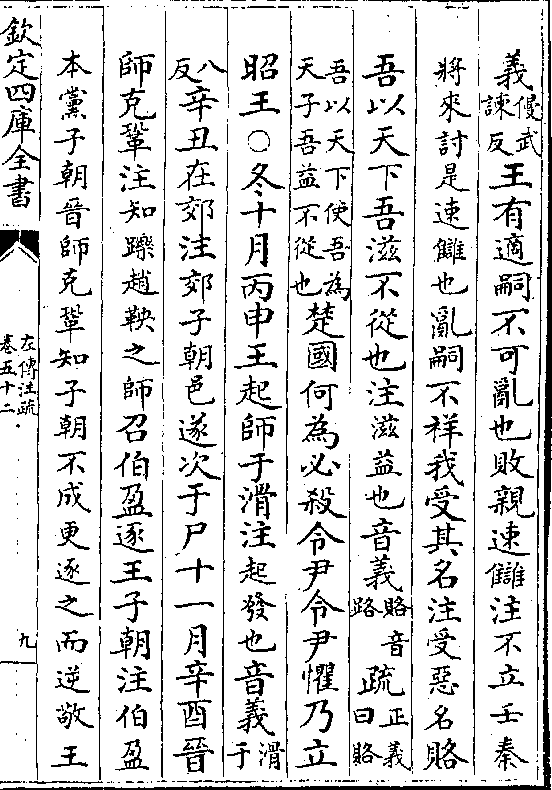 義慢武諫反王有適嗣不可亂也敗親速讎注不立壬秦
將來討是速讎也亂嗣不祥我受其名注受惡名賂
吾以天下吾滋不從也注滋益也音義賂音路疏正義曰賂
吾以天下使吾為天子吾益不從也楚國何為必殺令尹令尹懼乃立
昭王○冬十月丙申王起師于滑注起發也音義滑于
八反辛丑在郊注郊子朝邑遂次于尸十一月辛酉晉
師克鞏注知躒趙鞅之師召伯盈逐王子朝注伯盈
本黨子朝晉師克鞏知子朝不成更逐之而逆敬王
欽定四庫全書
左傳注疏
卷五十二
九